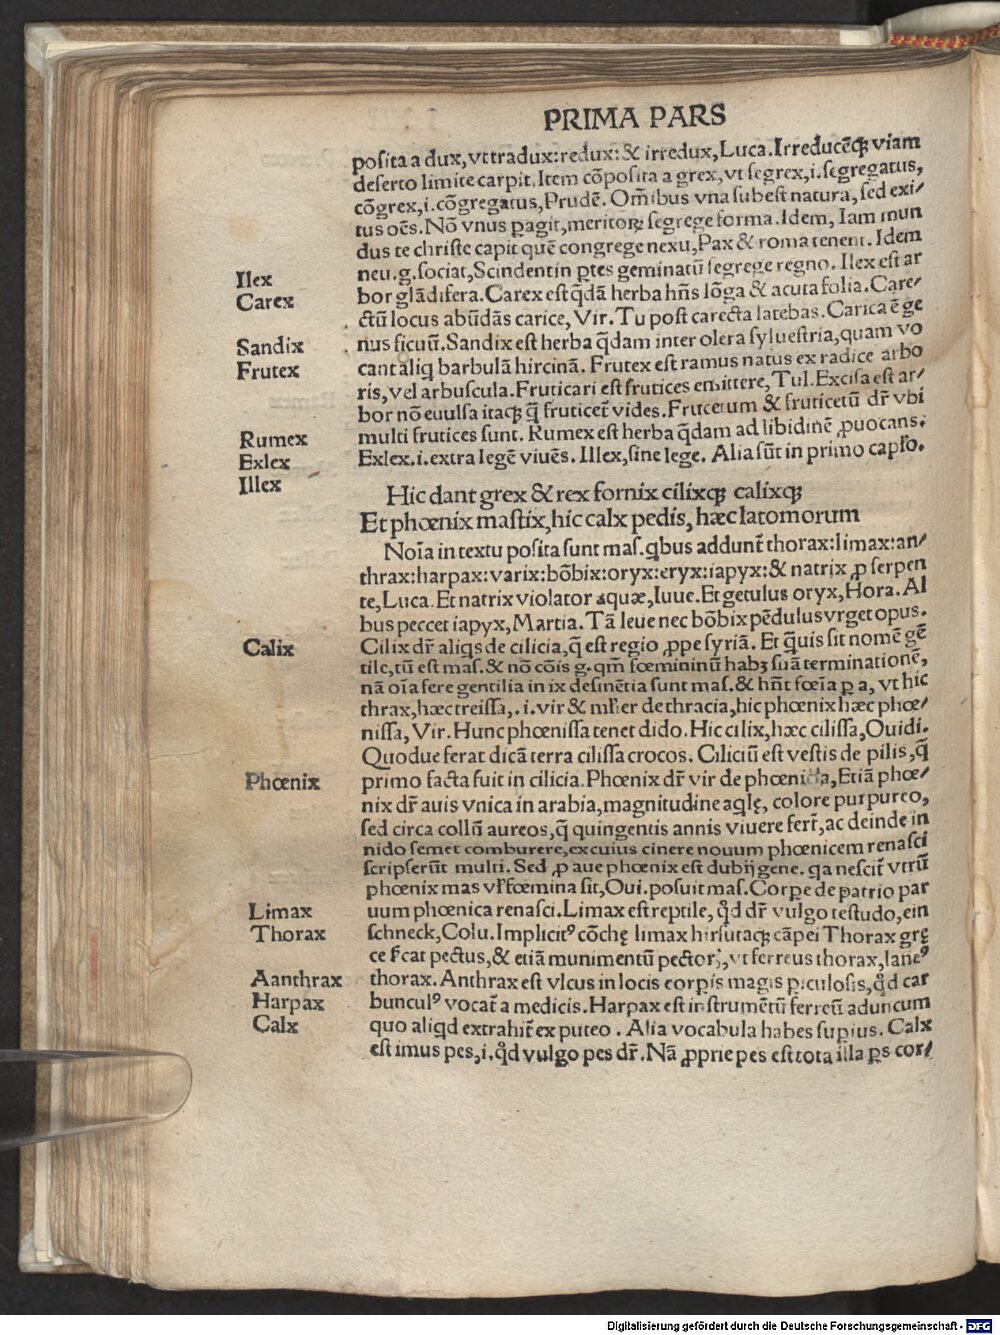 PRIMA PARS
posita a dux, vt tradux: redux: & irredux, Luca. Irreducēqꝫ viam
deserto limite carpit. Item cōposita a grex, vt segrex, i. segregatus,
cōgrex, i. cōgregatus, Prudē. Om̄ibus vna subest natura, sed exi/
tus oēs. Nō vnus ꝑagit, meritoꝝ segrege forma. Idem, Iam mun
dus te christe capit quē congrege nexu, Pax & roma tenent. Idem
neu. g. sociat, Scindent in ꝑtes geminatū segrege regno. Ilex est ar
Ilex
bor glādifera. Carex est q̄dā herba hn̄s lōga & acuta folia. Care/
Carex
ctū locus abūdās carice, Vir. Tu post carecta latebas. Carica ē ge
nus ficuū. Sandix est herba q̄dam inter olera syluestria, quam vo
Sandix
cant aliq barbulā hircinā. Frutex est ramus natus ex radice arbo
Frutex
ris, vel arbuscula. Fruticari est frutices emittere, Tul. Excisa est ar/
bor nō euulsa itaqꝫ q̄ fruticet̄ vides. Frucetum & fruticetū dr̄ vbi
multi frutices sunt. Rumex est herba q̄dam ad libidinē ꝓuocans.
Rumex
Exlex. i. extra legē viuēs. Illex, sine lege. Alia sūt in primo capl̄o.
Exlex
Illex
Hic dant grex & rex fornix cilixqꝫ calixqꝫ
Et phœnix mastix, hic calx pedis, hæc latomorum
Noīa in textu posita sunt mas. qbus addunt̄ thorax: limax: an/
thrax: harpax: varix: bōbix: oryx: eryx: iapyx: & natrix ꝓ serpen
te, Luca. Et natrix violator aquæ, Iuue. Et getulus oryx, Hora. Al
bus peccet iapyx, Martia. Tā leue nec bōbix pēdulus vrget opus.
Cilix dr̄ aliqs de cilicia, q̄ est regio ꝓpe syriā. Et q̄uis sit nomē gē
Calix
tile, tū est mas. & nō cōis g. qm̄ fœmininū habꝫ suā terminationē,
nā oīa fere gentilia in ix desinētia sunt mas. & hn̄t fœīa ꝑ a, vt hic
thrax, hæc treissa, . i. vir & ml̄ier de thracia, hic phœnix hæc phœ/
nissa, Vir. Hunc phœnissa tenet dido. Hic cilix, hæc cilissa, Ouidi.
Quod ue ferat dicā terra cilissa crocos. Ciliciū est vestis de pilis, q̄
primo facta fuit in cilicia. Phœnix dr̄ vir de phœnicia, Etiā phœ/
Phœnix
nix dr̄ auis vnica in arabia, magnitudine aqlę, colore purpureo,
sed circa collū aureos, q̄ quingentis annis viuere fert̄, ac deinde in
nido semet comburere, ex cuius cinere nouum phœnicem renasci
scripserūt multi. Sed ꝓ aue phœnix est dubij gene. qa nescit̄ vtrū
phœnix mas vl̄ fœmina sit, Oui. posuit mas. Corpe de patrio par
uum phœnica renasci. Limax est reptile, qd̄ dr̄ vulgo testudo, ein
Limax
schneck, Colu. Implicitꝰ cōchę limax hirsutaqꝫ cāpei Thorax grę
Thorax
ce sc̄at pectus, & etiā munimentū pectoris, vt ferreus thorax, laneꝰ
thorax. Anthrax est vlcus in locis corpis magis ꝑiculosis, qd̄ car
Aanthrax
bunculꝰ vocat̄ a medicis. Harpax est instrumētū ferreū aduncum
Harpax
quo aliqd extrahit̄ ex puteo. Alia vocabula habes supius. Calx
Calx
est imus pes, i. qd̄ vulgo pes dr̄. Nā ꝓprie pes est tota illa ꝑs cor/
Digitalisierung gefördert durch die Deutsche Forschungsgemeinschaft - DFG